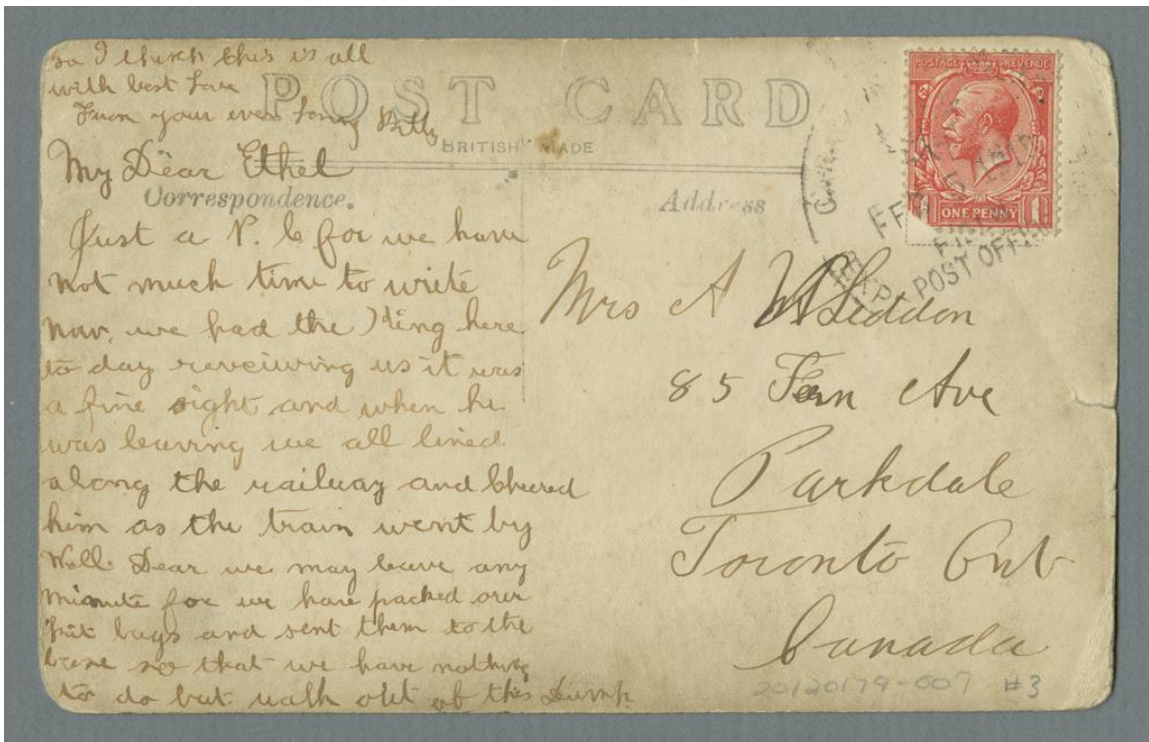 so I think this is all
with best love
From your ever loving Billy
POST CARD
BRITISH MADE
My Dear Ethel
Correspondence.
Address
Just a P. C for we have
not much time to write
now, we had the King here
to day reveiwing us it was
a fine sight and when he
was leaving we all lined
along the railway and Cheered
him as the train went by
Well Dear we may leave any
minute for we have packed our
kit bags and sent them to the
base so that we have nothing
to do but walk out of this Dump
POSTAGE REVENUE
ONE PENNY
FEB 5
POST OFFI
Mrs A Siddon
85 Fern Ave
Parkdale
Toronto Ont
Canada
20120179-007 #3